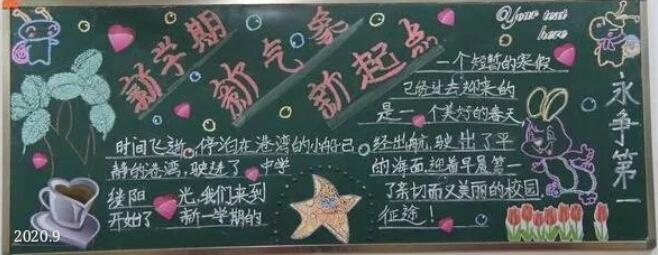 新学期
新气象
新起点
Your text
here
一个短暂的寒假
已经过去迎来的
是一个美好的春天
时间飞逝,停泊在港湾的小船已 经出航,驶出了平
静的港湾,驶进了 中学 的海面,迎着早晨第一
缕阳 光,我们来到 了亲切而又美丽的校园,
开始了 新一学期的 征途!
永争第一
2020.9